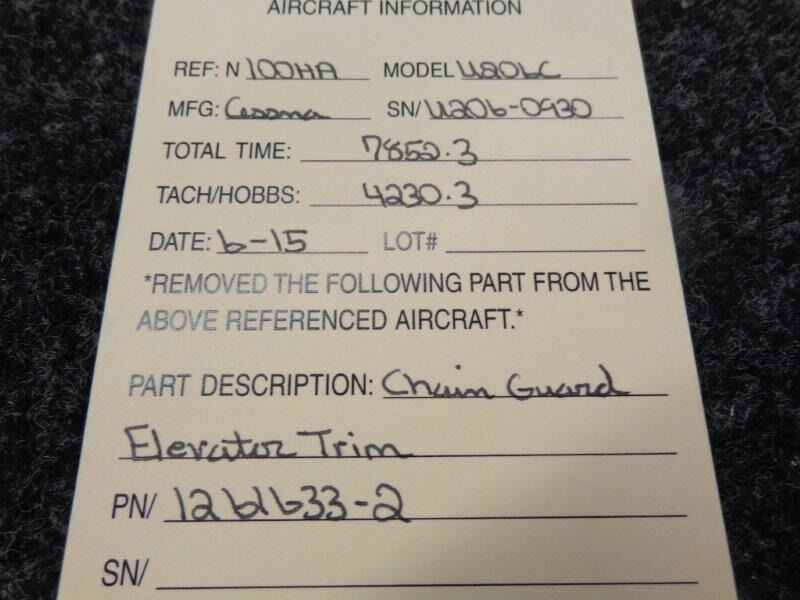 AIRCRAFT INFORMATION
REF: N 100HA MODEL U206C
MFG: Cessna SN/ U206-0930
TOTAL TIME: 7852.3
TACH/HOBBS: 4230.3
DATE: 6-15 LOT#
*REMOVED THE FOLLOWING PART FROM THE
ABOVE REFERENCED AIRCRAFT.*
PART DESCRIPTION: Chain Guard
Elevator Trim
PN/ 1261633-2
SN/